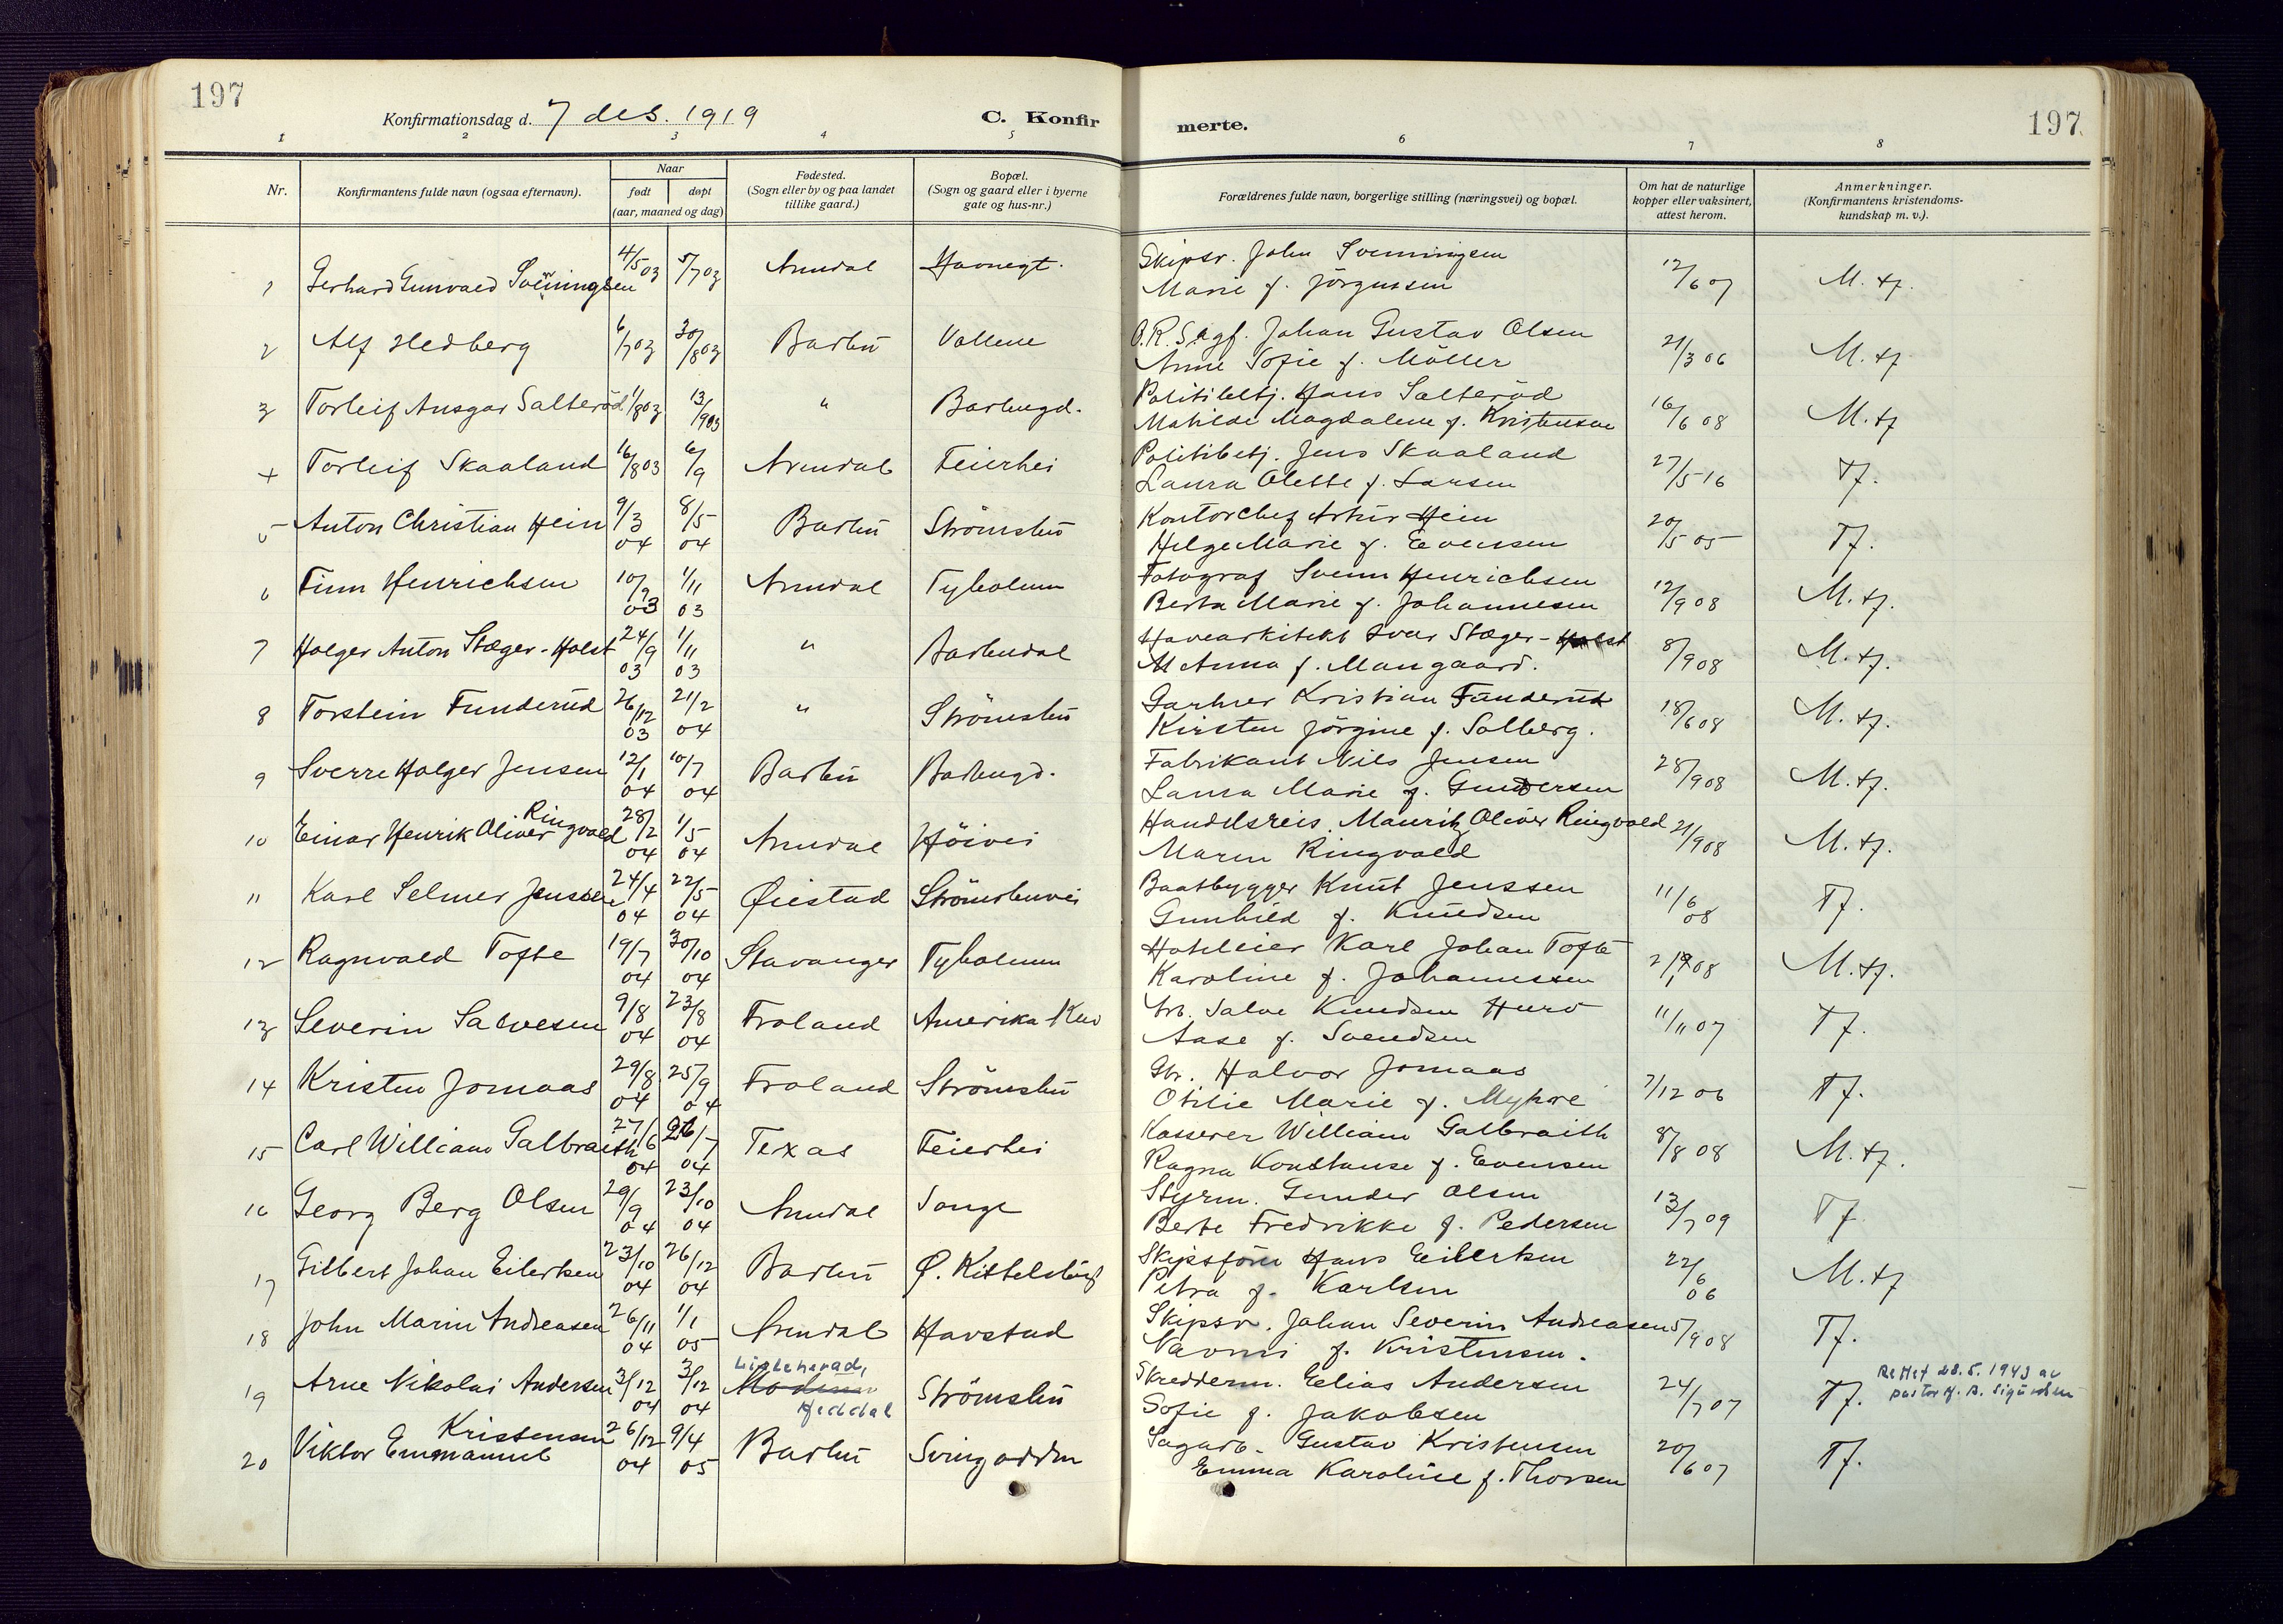 197
197
Konfirmationsdag d. 7 des. 1919
C. Konfirmerte.
1 2 3 4 5 6 7 8
Nr.
Konfirmantens fulde navn (ogsaa efternavn).
Naar
født døpt
(aar, maaned og dag)
Fødested.
(Sogn eller by og paa landet
tillike gaard.)
Bopæl.
(Sogn og gaard eller i byerne
gate og hus-nr.)
Forældrenes fulde navn, borgerlige stilling (næringsvei) og bopæl.
Om hat de naturlige
kopper eller vaksinert,
attest herom.
Anmerkninger.
(Konfirmantens kristendoms-
kundskap m. v.).
1 Gerhard Gunvald Svenningsen 4/5 03 5/7 03 Arendal Havnegt. Skipsr. John Svenningsen 12/6 07 M. tf.
Marie f. Jörgensen
2 Alf Hedberg 6/7 03 30/8 03 Barbu Vollene Johan Gustav Olsen 21/3 06 M. tf
Anne Sofie f. Möller
3 Torleif Ansgar Salteröd 1/8 03 13/9 03 " Barbugd. Politibetj. Hans Salteröd 16/6 08 M. tf
Mathilde Magdalene f. Kristensen
4 Torleif Skaaland 16/8 03 6/9 Arendal Feierhei Politibetj. Jens Skaaland 27/5 16 Tf.
Laura Olette f. Larsen
5 Anton Christian Hein 9/3 04 8/5 04 Barbu Strömsbu Kontorchef Artur Hein 20/5 05 Tf.
Helge Marie f. Evensen
6 Finn Henrichsen 10/9 03 1/11 03 Arendal Tyholmen Fotograf Svenn Henrichsen 12/9 08 M. tf.
Berta Marie f. Johannesen
7 Holger Anton Stæger-Holst 24/9 03 1/11 03 " Barbudal Havearkitekt Ivar Stæger-Holst 8/9 08 M. tf.
M Anna f. Mangaard.
8 Torstein Funderud 26/12 03 21/2 04 " Strömsbu Gartner Kristian Funderud 18/6 08 M. tf.
Kirsten Jörgine f. Solberg.
9 Sverre Holger Jensen 12/1 04 10/7 04 Barbu Barbugd. Fabrikant Nils Jensen 28/9 08 M. tf.
Laura Marie f. Gundersen
10 Einar Henrik Oliver Ringvold 28/2 04 1/5 04 Arendal Höivei Handelsreis. Mauritz Oliver Ringvold 21/9 08 M. tf.
Maren Ringvold
11 Karl Selmer Jenssen 24/4 04 22/5 04 Øiestad Strömsbuvei Baatbygger Knut Jenssen 11/6 08 Tf.
Gunhild f. Knudsen
12 Ragnvald Tofte 19/7 04 30/10 04 Stavanger Tyholmen Hoteleier Karl Johan Tofte 08 M. tf.
Karoline f. Johannessen
13 Severin Salvesen 9/8 04 23/8 04 Froland Amerika Salve Knudsen 11/11 07 Tf.
Aase f. Svendsen
14 Kristen Jomaas 29/8 04 25/9 04 Froland Strömsbu Gbr. Halvor Jomaas 7/12 06 Tf.
Otilie Marie f. Myhre
15 Carl William Galbraith 27/6 04 /7 04 Texas Feierhei Kasserer William Galbraith 8/8 08 M. tf.
Ragna Konstanse f. Evensen
16 Georg Berg Olsen 29/9 04 23/10 04 Arendal Songe Styrm. Gunder Olsen 13/7 09 Tf
Berte Fredrikke f. Pedersen
17 Gilbert Johan Eilertsen 23/10 04 26/12 04 Barbu Ø. Kittelsbugt Skipsförer Hans Eilertsen 22/6 06 M. tf
Petra f. Karlsen
18 John Marin Andreasen 26/11 04 1/1 05 Arendal Havstad Skipsr. Johan Severin Andreasen 5/9 08 Tf.
Naomi f. Kristensen.
19 Arne Nikolai Andersen 3/12 04 3/12 04 Lisleherad, Heddal Strömsbu Skredderm. Elias Andersen 24/7 07 Tf. Rettet 28.5.1943 av
Sofie f. Jakobsen pastor
20 Viktor Emmanuel Kristensen 26/12 04 9/4 05 Barbu Svingodden Sagarb. Gustav Kristensen 20/6 07 Tf.
Emma Karoline f. Thorsen